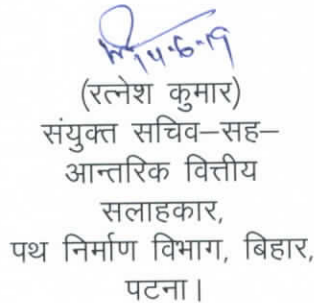 14.6.19
(रत्नेश कुमार)
संयुक्त सचिव–सह–
आन्तरिक वित्तीय
सलाहकार,
पथ निर्माण विभाग, बिहार,
पटना।